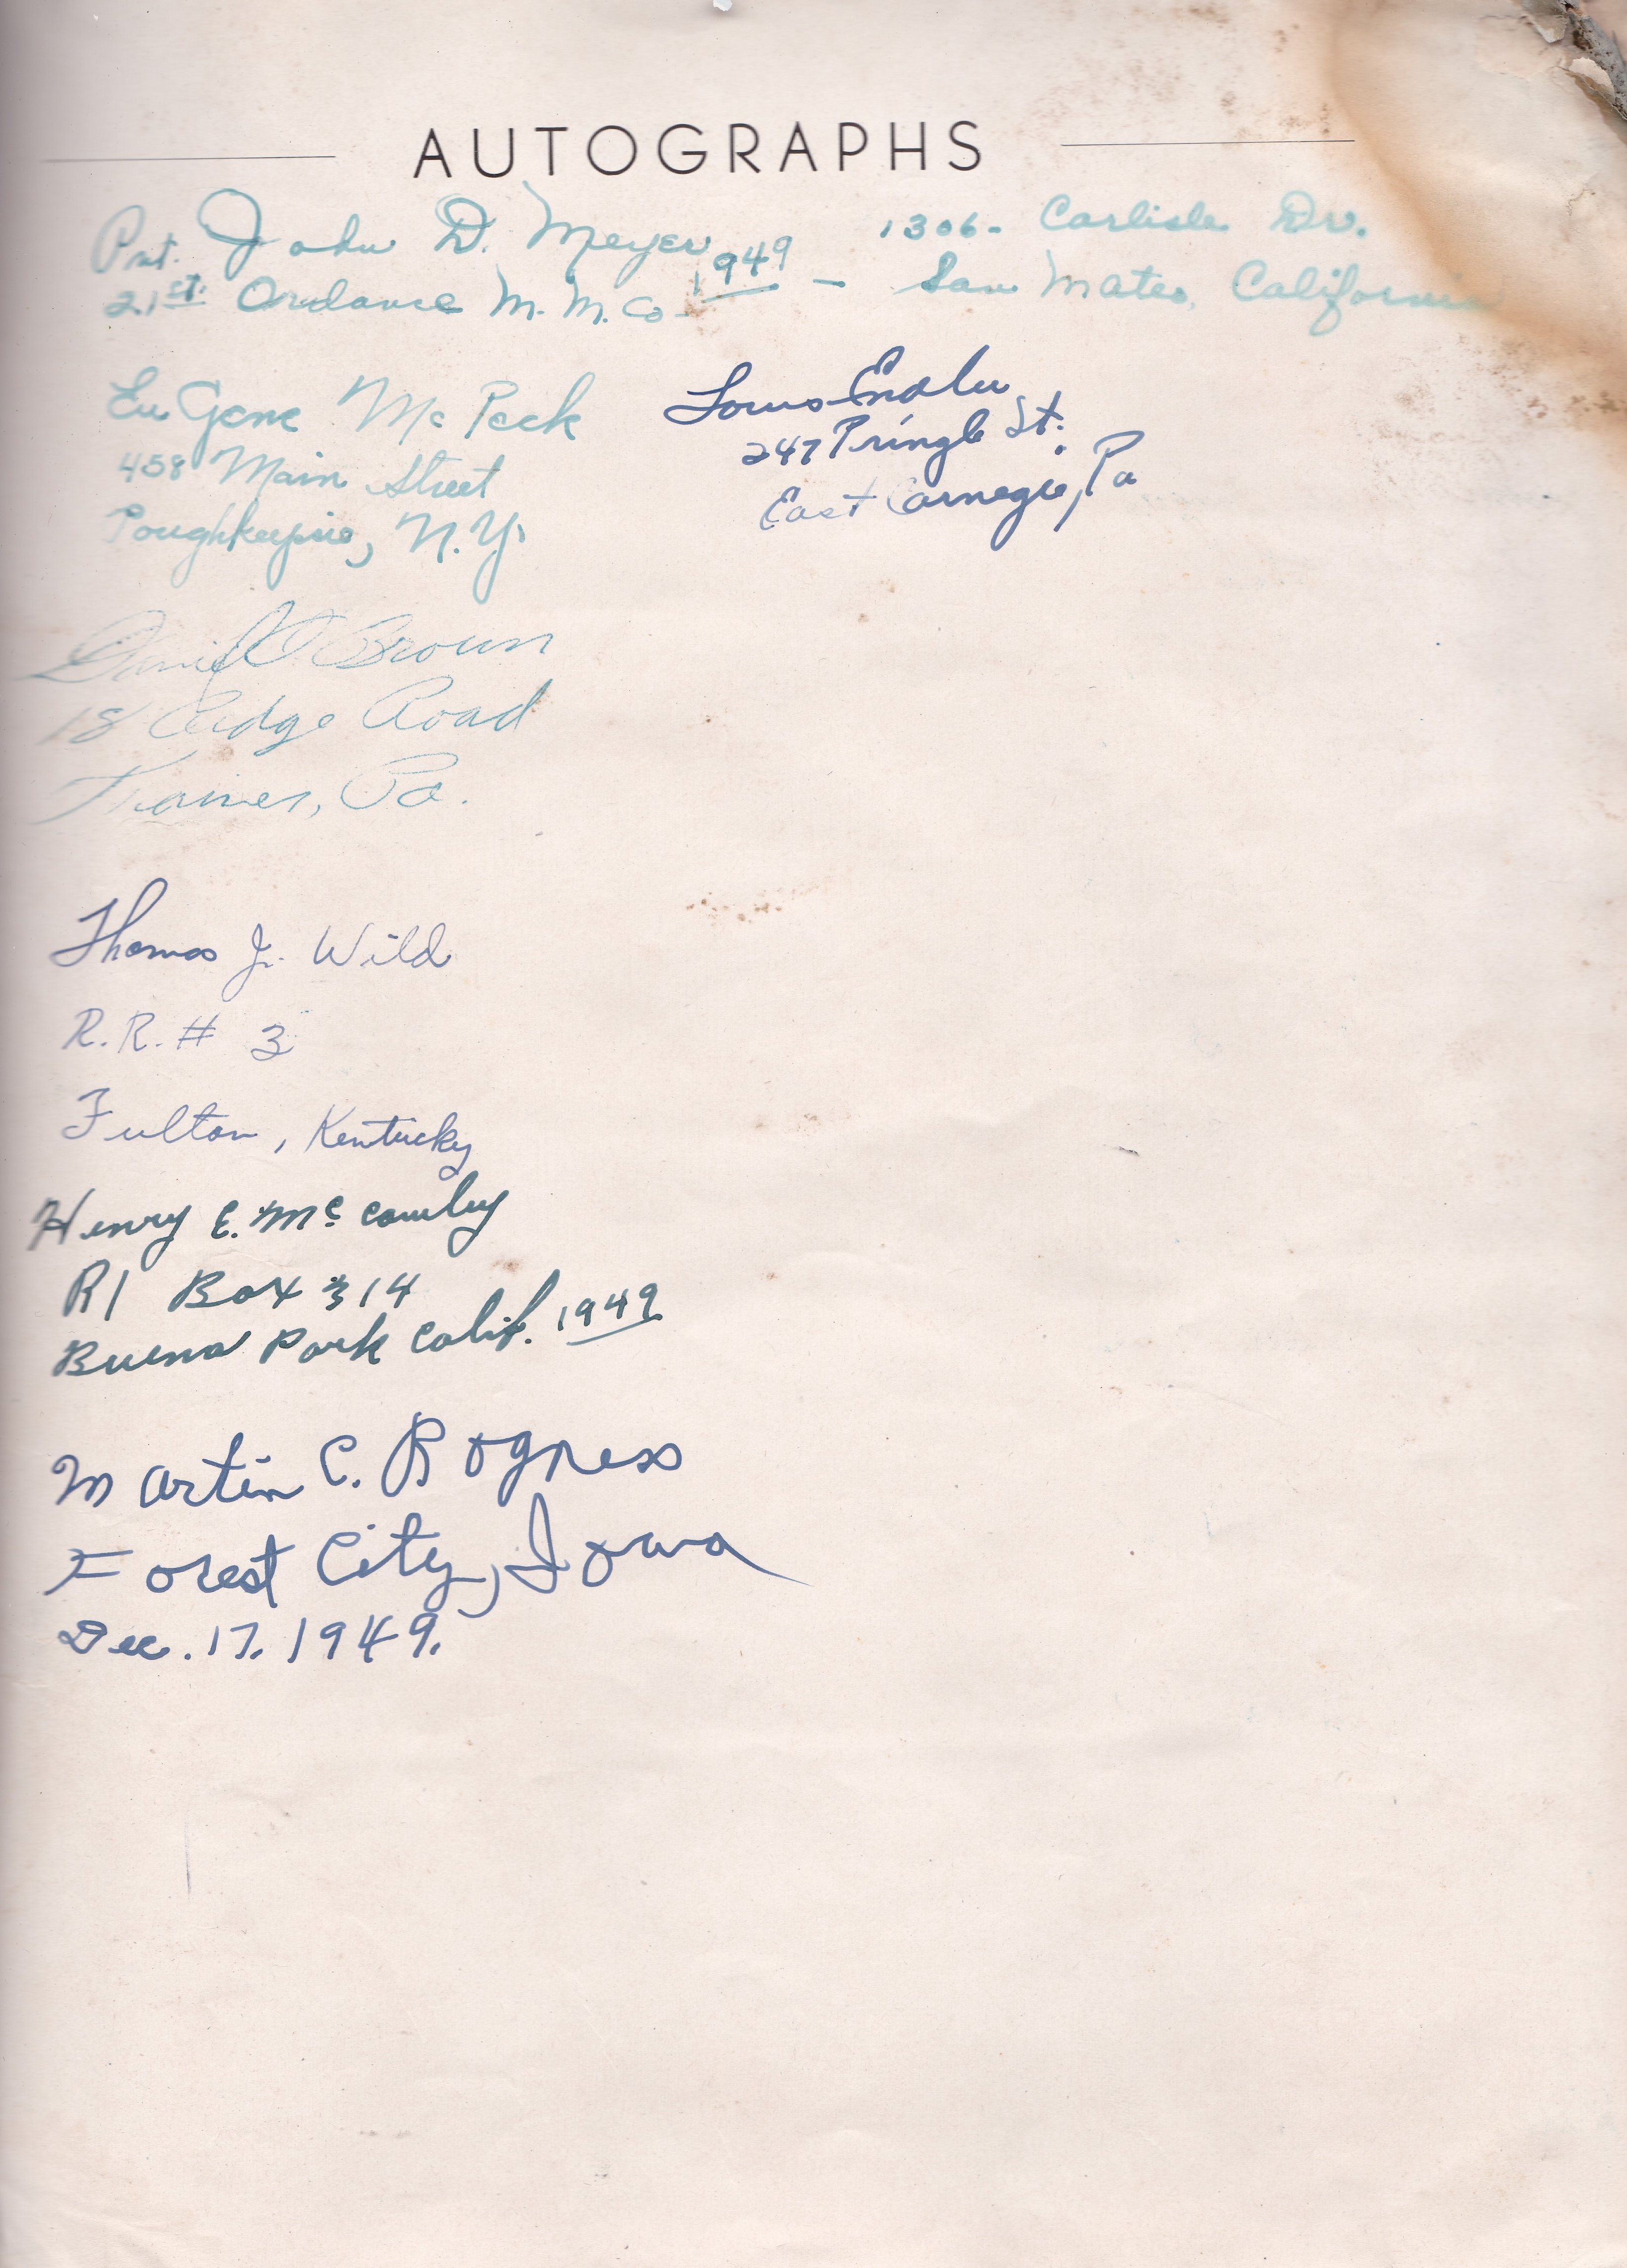 AUTOGRAPHS
Pvt. John D. Meyer 1949 1306- Carlisle Dr.
21st. Ordance M. M. Co. - San Mateo, California
EuGene McPeek
458 Main Street
Poughkeepsie, N.Y.
Louis
247 Pringle St.
East Carnegie, Pa
Daniel Brown
18 Ridge Road
Trainer, Pa.
Thomas Jr. Wild
R.R. # 3
Fulton, Kentucky
Henry E. Mc
R1 Box 314
Buena Park Calif. 1949
Martin C. Rogness
Forest City, Iowa
Dec. 17, 1949.